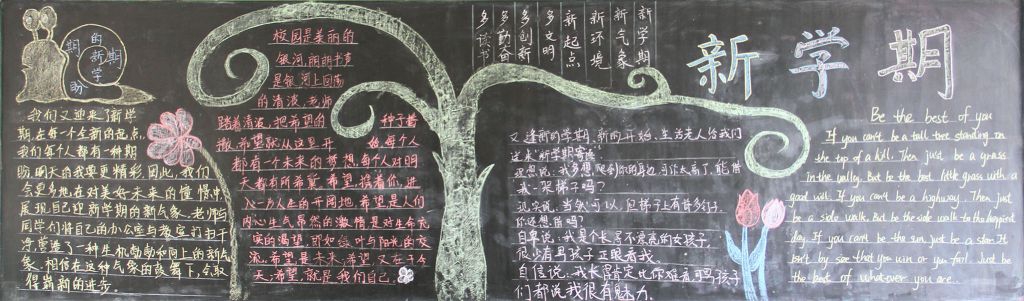 新学期
新学期
新气象
新环境
新起点
多文明
多创新
多勤奋
多读书
期的新学期盼
我们又迎来了新学
期,在每一个全新的起点,
我们每个人都有一种期
盼,明天的我要更精彩,因此,我们
会更多地在对美好未来的憧憬中
展现自己迎新学期的新气象.老师与
同学们将自己的办公室与教室打扫干
净,营造了一种生机勃勃和向上的新气
象,相信在这种气象的鼓舞下,会取
得崭新的进步.
校园是美丽的
银河,朗朗书声
是银河上回荡
的清波,老师
踏着清波,把希望的种子播
撒,希望就从这里开始,每个人
都有一个未来的梦想,每个人对明
天都有所希冀,希望,携着你,进
入一方人生的开阔地,希望是人们
内心生气昂然的激情是对生命充
实的渴望,即如绿叶与阳光的交
流,希望是未来,希望又在于今
天,希望,就是我们自己.
又逢新的学期,新的开始,生活老人给我们
送来新学期寄语
理想说:我多想爬到你的身边,可你太高了,能借
我一架梯子吗?
现实说:当然可以,但梯子上有许多钉子,
你还想借吗?
自卑说:我是个长得不漂亮的女孩子,
很少有男孩子正眼看我.
自信说:我长得肯定比你难看,可孩子
们都说我很有魅力.
Be the best of you
If you can't be a tall tree standing on
the top of a hill. Then just be a grass
in the valley. But be the best little grass with a
good will. If you can't be a highway. Then just
be a side walk. But be the side walk to the happiest
day. If you can't be the sun, just be a star. It
isn't by size that you win or you fail. Just be
the best of whatever you are.